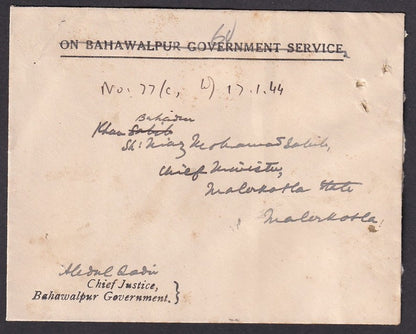 64
ON BAHAWALPUR GOVERNMENT SERVICE.
No. 77(c, 17.1.44
Bahadur
Khan Sahib
Sh: Niaz Mohamad Sahib,
Chief Minister,
Malerkotla State
Malerkotla.
Abdul Qadir
Chief Justice,
Bahawalpur Government.